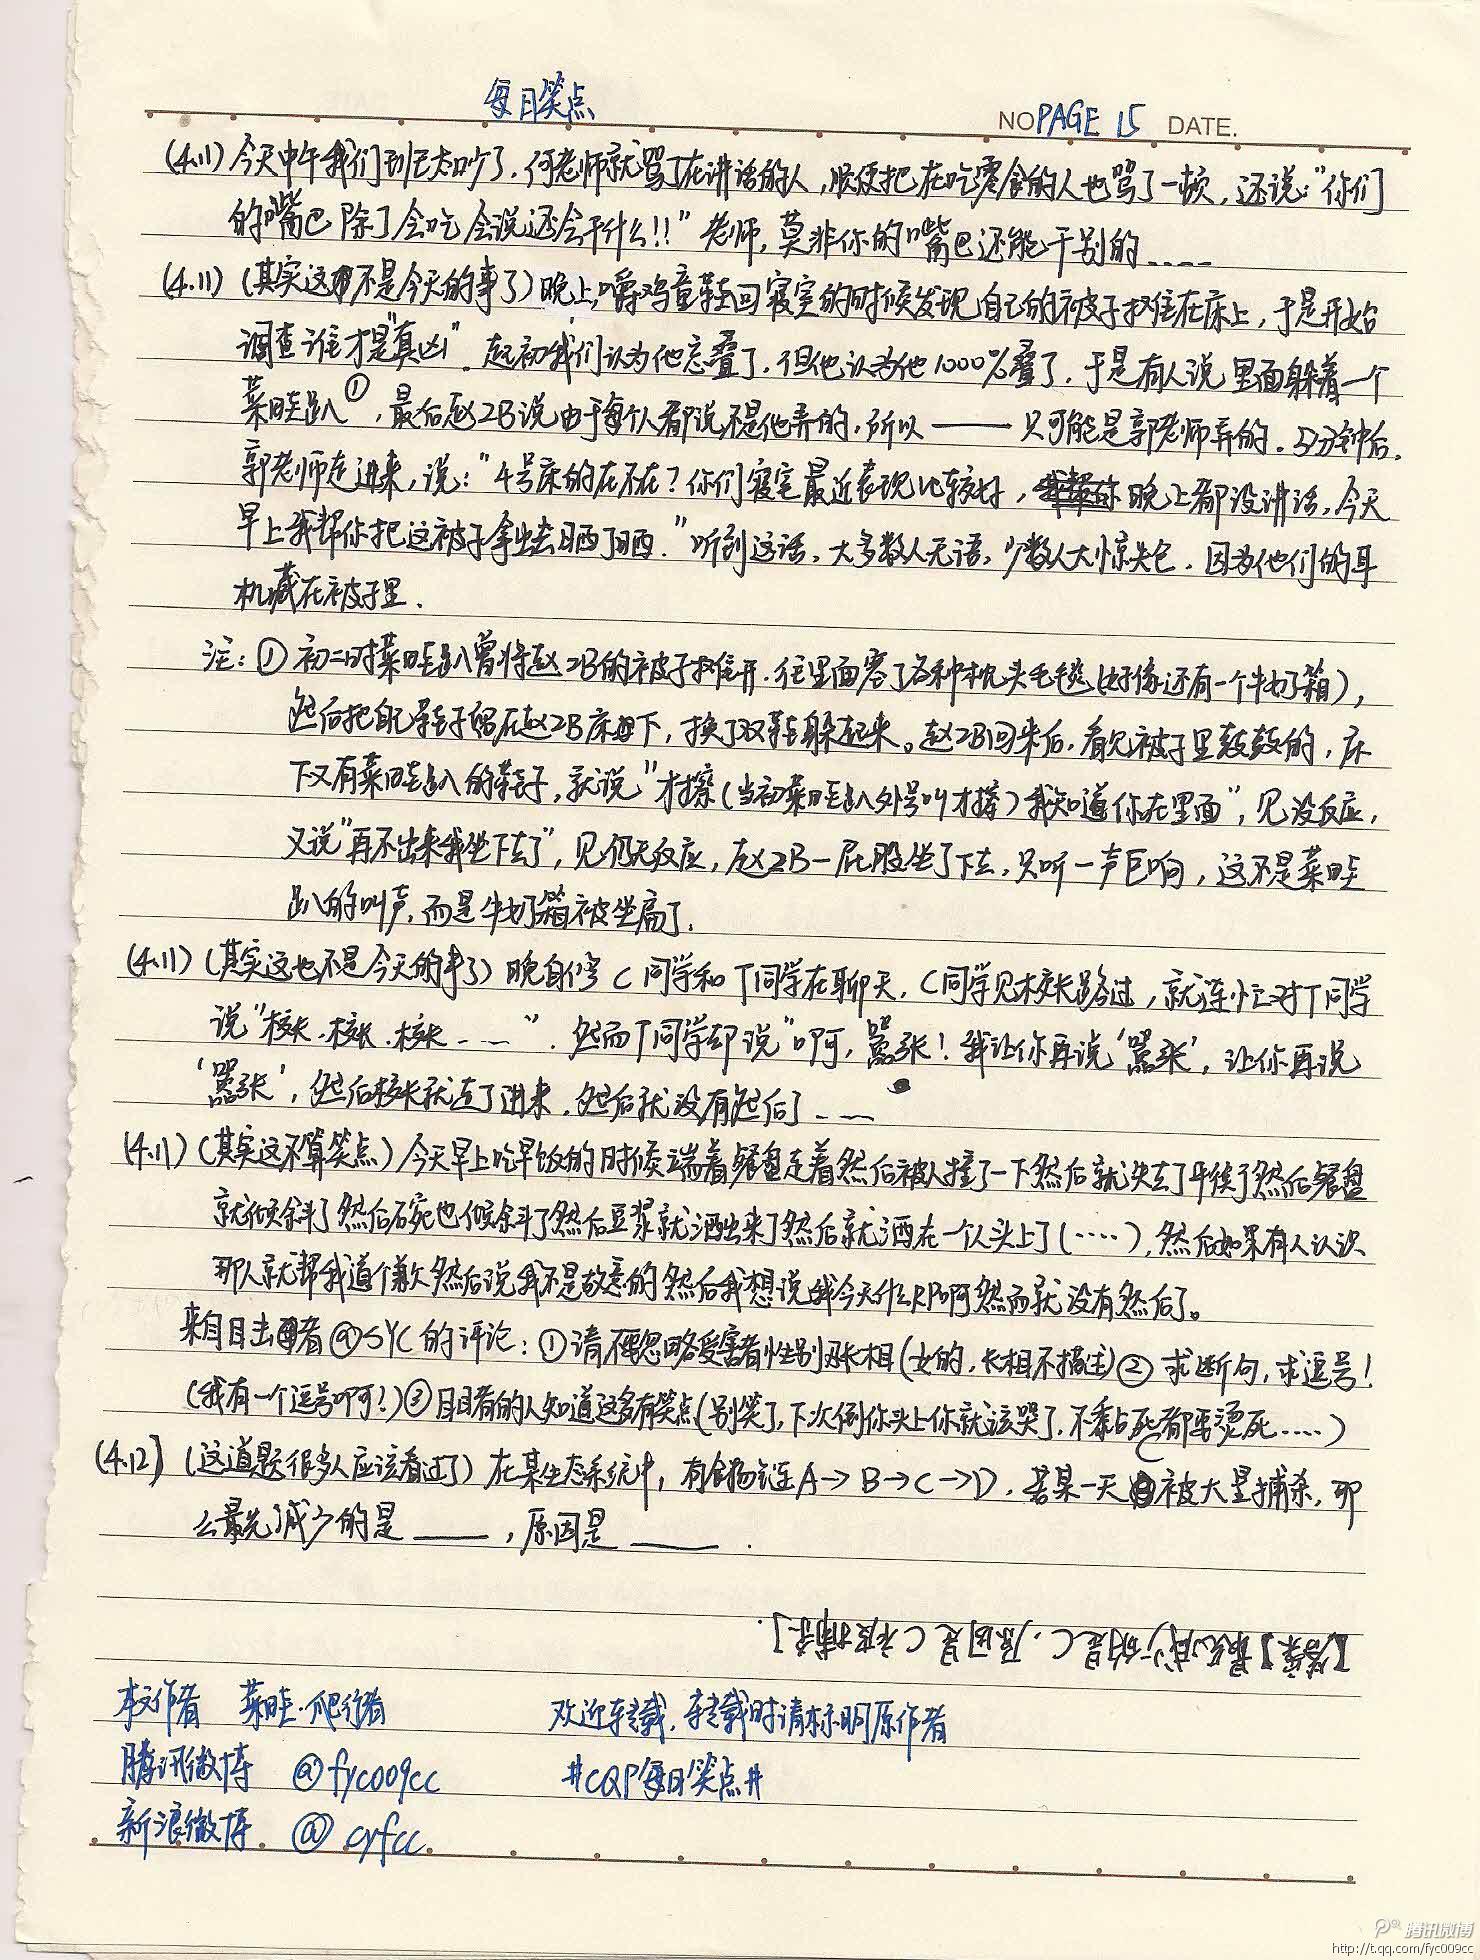 每日笑点
NO PAGE 15 DATE.
(4.11) 今天中午我们班无太吵了，何老师就骂了在讲话的人，顺便把在吃零食的人也骂了一顿，还说："你们
的嘴巴除了会吃会说还会干什么!!"老师，莫非你的嘴巴还能干别的……
(4.11) (其实这不是今天的事了) 晚上，嚼鸡童鞋回寝室的时候发现自己的被子摊在床上，于是开始
调查谁才是"真凶"。起初我们认为他忘叠了，但他认为他1000%叠了，于是有人说里面躲着一个
菜畦趴①，最后赵2B说由于每个人都说不是他弄的，所以——只可能是郭老师弄的。5分钟后，
郭老师走进来，说："4号床的在不在？你们寝室最近表现比较好，晚上都没讲话，今天
早上我帮你把这被子拿出去晒了晒。"听到这话，大多数人无语，少数人大惊失色，因为他们的耳
机藏在被子里.
注：① 初二时菜畦趴曾将赵2B的被子摊开，往里面塞了各种枕头毛毯(好像还有一个牛奶箱)，
然后把自己鞋子留在赵2B床下，换了双鞋躲起来。赵2B回来后，看见被子里鼓鼓的，床
下又有菜畦趴的鞋子，就说"才擦(当初菜畦趴外号叫才擦)我知道你在里面"，见没反应，
又说"再不出来我坐下去了"，见仍无反应，赵2B一屁股坐了下去，只听一声巨响，这不是菜畦
趴的叫声，而是牛奶箱被坐扁了.
(4.11) (其实这也不是今天的事了) 晚自修C同学和T同学在聊天，C同学见校长路过，就连忙对T同学
说"校长、校长、校长……"，然而T同学却说"啊，嚣张！我让你再说'嚣张'，让你再说
'嚣张'，然后校长就走了进来，然后就没有然后了……
(4.11) (其实这不算笑点) 今天早上吃早饭的时候端着餐盘走着然后被人撞了一下然后就失去了平衡了然后餐盘
就倾斜了然后碗也倾斜了然后豆浆就洒出来了然后就洒在一个人头上了(……)，然后如果有人认识
那人就帮我道个歉然后说我不是故意的然后我想说我今天什么RP啊然而就没有然后了。
来自目击者@SYC的评论：①请不要忽略受害者性别及长相(女的，长相不描述)②求断句，求逗号！
(我有一个逗号啊！)③目睹的人知道这多有笑点(别笑了，下次倒你头上你就该哭了，不黏死都要烫死……)
(4.12) (这道题很多人应该看过了) 在某生态系统中，有食物链A→B→C→D，若某一天C被大量捕杀，那
么最先减少的是____，原因是____.
【答案】最先减少的是C，原因是C被捕杀.
本文作者 菜畦·爬行者 欢迎转载，转载时请标明原作者
腾讯微博 @fyc009cc #CQP每日笑点#
新浪微博 @cyfcc
腾讯微博
http://t.qq.com/fyc009cc